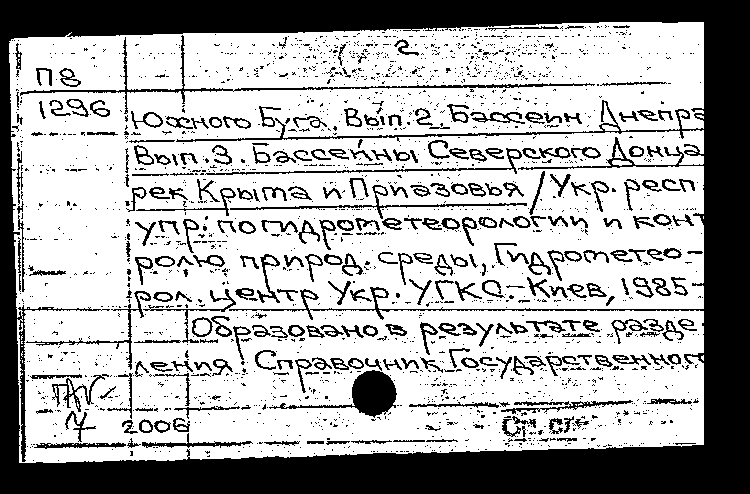 2
П8
1296
Южного Буга. Вып.2. Бассейн Днепра
Вып.3. Бассейны Северского Донца
рек Крыма и Приазовья / Укр. респ
упр. по гидрометеорологии и конт
ролю природ. среды, Гидрометео-
рол. центр Укр. УГКС.-Киев, 1985-
Образовано в результате разде
ления: Справочник Государственного
7 2006